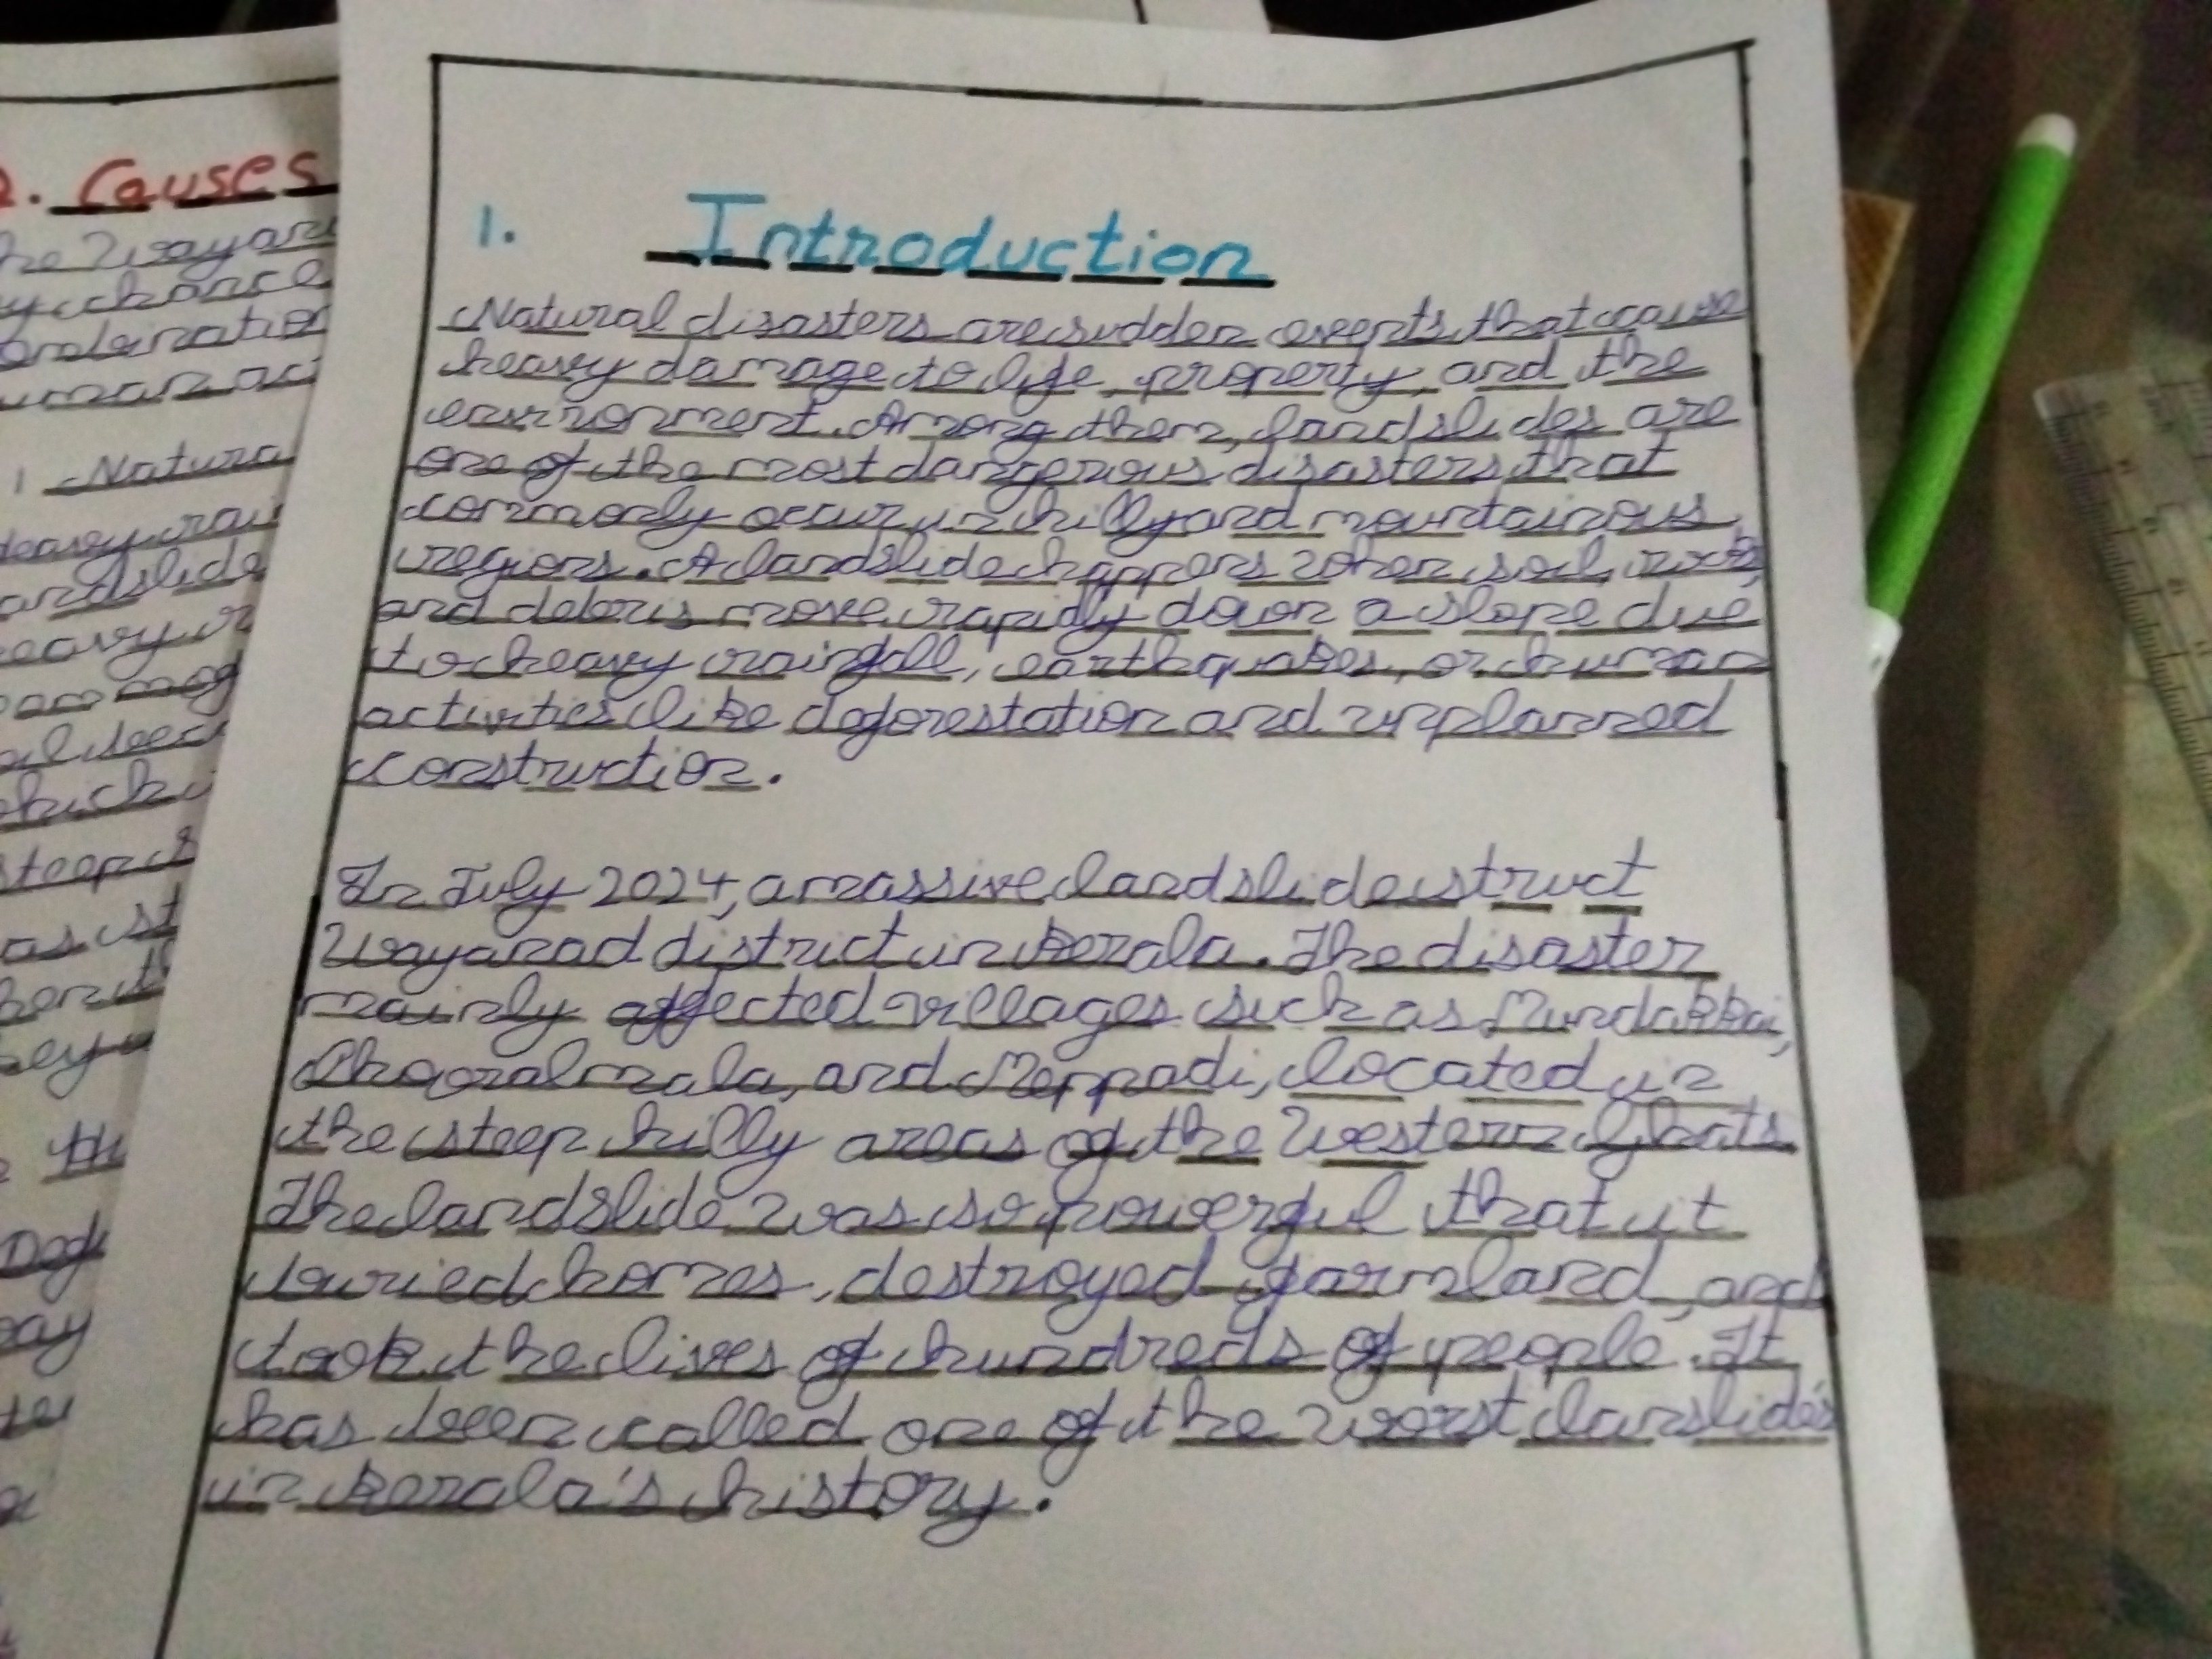 1. Introduction
Natural disasters are sudden events that cause
heavy damage to life, property, and the
environment. Among them, landslides are
one of the most dangerous disasters that
commonly occur in hilly and mountainous
regions. A landslide happens when soil, rocks,
and debris move rapidly down a slope due
to heavy rainfall, earthquakes, or human
activities like deforestation and unplanned
construction.
In July 2024, a massive landslide struct
Wayanad district in Kerala. The disaster
mainly affected villages such as Mundakkai,
Chooralmala, and Meppadi, located in
the steep hilly areas of the Western Ghats.
The landslide was so powerful that it
buried homes, destroyed farmland, and
took the lives of hundreds of people. It
has been called one of the worst lanslides
in Kerala's history.
2. Causes
he Wayana
y chance
ombination
uman aci
1 Natura
Heavy rai
andslide
heavy r
steep s
as st